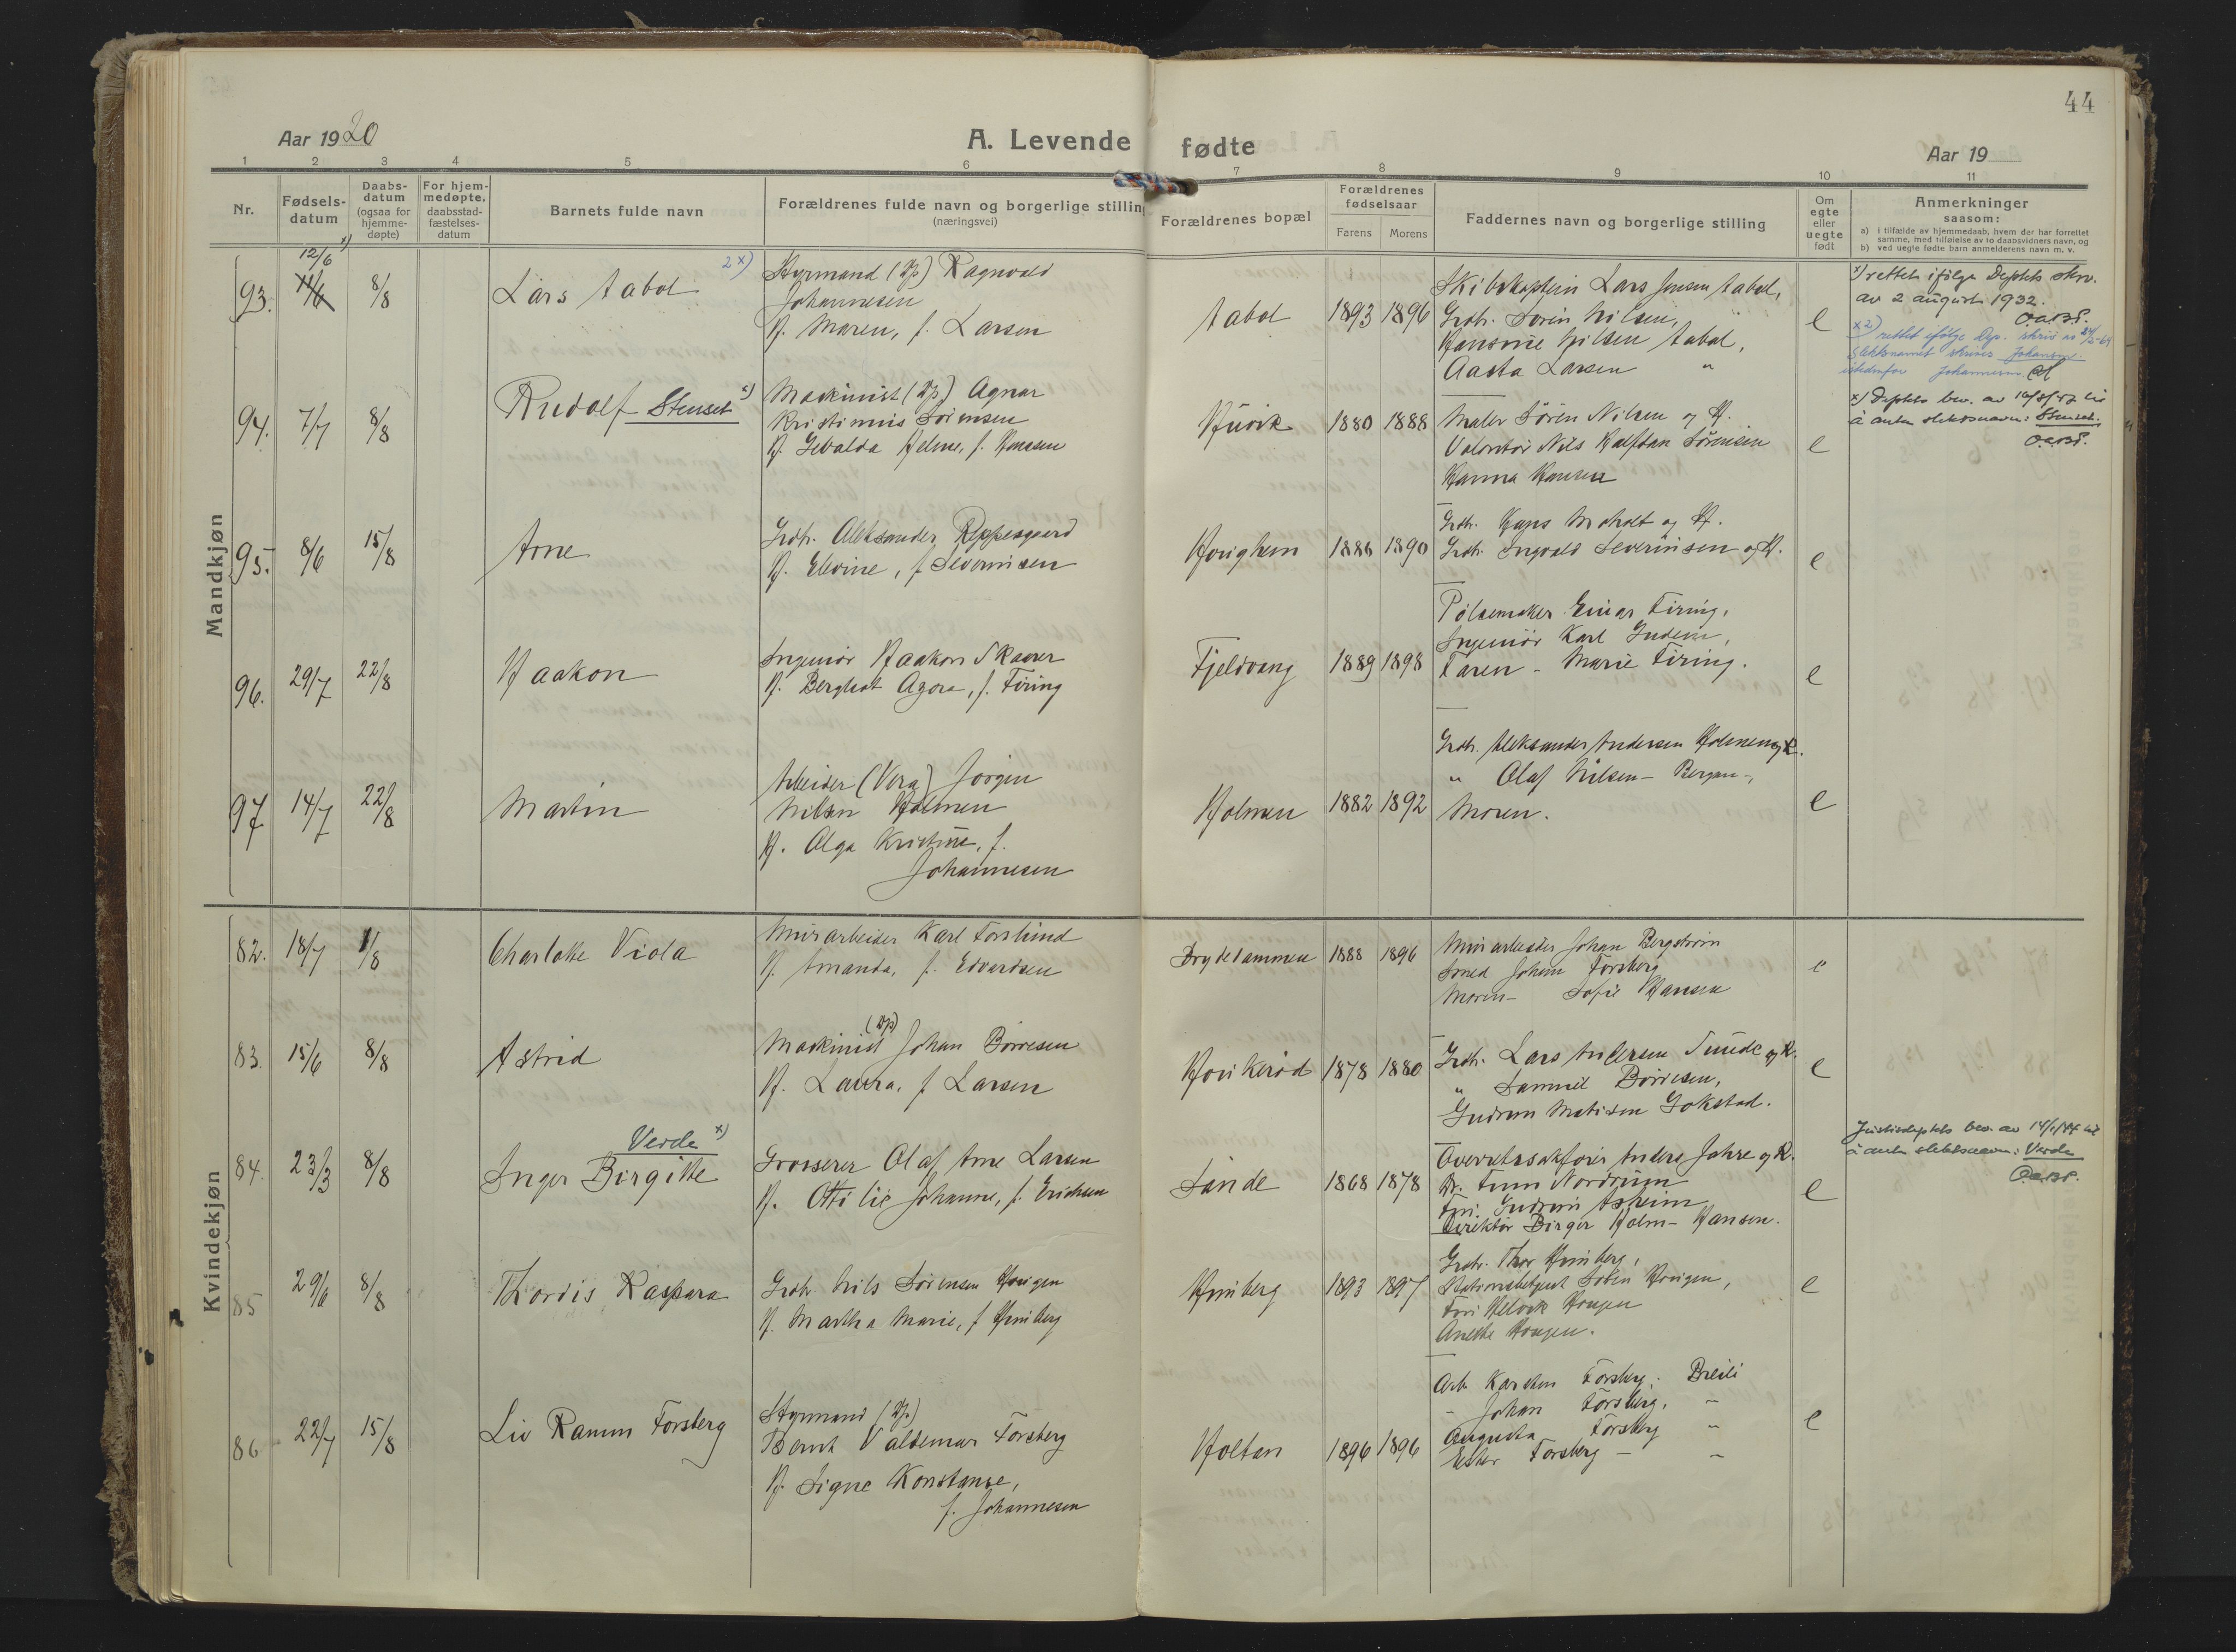 44
Aar 1920
A. Levende fødte
Aar 19
1 2 3 4 5 6 7 8 9 10 11
Nr.
Fødsels-
datum
Daabs-
datum
(ogsaa for
hjemme-
døpte)
For hjem-
medøpte,
daabsstad-
fæstelses-
datum
Barnets fulde navn
Forældrenes fulde navn og borgerlige stilling
(næringsvei)
Forældrenes bopæl
Forældrenes
fødselsaar
Farens Morens
Faddernes navn og borgerlige stilling
Om
egte
eller
uegte
født
Anmerkninger
saasom:
a) i tilfælde av hjemmedaab, hvem der har forrettet
samme, med tilføielse av to daabsvidners navn, og
b) ved uegte fødte barn anmelderens navn m. v.
Mandkjøn
93. 12/6 x) 11/6 8/8
Lars Aabol 2x)
Styrmand (Dp) Ragnvald
Johannesen
H. Maren, f. Larsen
Aabol 1893 1896
Skibskaptein Lars Jensen Aabol,
Grdbr. Søren Nilsen, "
Hansine Nilsen Aabol,
Aasta Larsen "
e
x) rettet ifølge Deptets skrv.
av 2 august 1932.
x2) rettet ifølge Dep. skriv av 24/5-64
Slektsnavnet skrives Johansen
istedenfor Johannesen
94. 7/7 8/8
Rudolf Stenset x)
Maskinist (Dp) Agnar
Kristinius Sørensen
H. Gevalda Helene, f. Hansen
1880 1888
Maler Søren Nilsen og H.
Nils Halfdan Sørensen
Hanna Hansen
e
x) Deptets bev. av
å anta slektsnavn: Stenset.
95. 8/6 15/8
Arne
Grdbr. Aleksander Reppesgaard
H. Elevine, f. Severinsen
1886 1890
Grdbr. Hans Moholt og H.
Grdbr. Ingvald Severinsen og H.
e
96. 29/7 22/8
Haakon
Ingeniør Haakon Skaarer
H. Bergliot Agora, f. Firing
Fjeldvang 1889 1898
Pølsemaker Einar Firing,
Ingeniør Karl
Faren - Marie Firing.
e
97 14/7 22/8
Martin
Arbeider (Vera) Jørgen
Nilsen Holmen
H. Olga Kristine, f.
Johannesen
Holmen 1882 1892
Grdbr. Aleksander Andersen Holmen og H.
" Olaf Nilsen - Bergan -,
Moren.
e
Kvindekjøn
82. 18/7 1/8
Charlotte Viola
Murarbeider Karl Forslund
H. Amanda, f. Edvardsen
1888 1896
Murarbeider Johan Bergstrøm
Smed Johan Forsberg
Moren - Sofie Hansen
e
83. 15/6 8/8
Astrid
Maskinist (Dp) Johan Børresen
H. Laura, f. Larsen
Hovikerød 1878 1880
Grdbr. Lars Andersen Sunde og H.
" Samuel Børresen,
Gudrun Matisen Gokstad.
e
84. 23/3 8/8
Verde x)
Inger Birgitte
Grosserer Olaf Arne Larsen
H. Ottilie Johanne, f. Erichsen
Sande 1868 1878
Overretssakfører Anders Jahre og H.
Dr. Finn Nordrum
Frk. Gudrun Asheim
Direktør Birger Holm-Hansen.
e
Justisdeptets bev. av 14/1/44 til
å anta slektsnavn: Verde
85 29/6 8/8
Thordis Kaspara
Grdbr. Nils Sørensen Haugen
H. Martha Marie, f. Huniberg
Huniberg 1893 1897
Grdbr. Thor Huniberg,
Stationsbetjent Søren Haugen,
Anette Haugen.
e
86 22/7 15/8
Liv Ramm Forsberg
Styrmand (Dp.)
Bernt Valdemar Forsberg
H. Signe Konstanse,
f. Johannesen
Holtan 1896 1896
Arb. Karsten Forsberg, Breili
" Johan Forsberg, "
Augusta Forsberg "
Ester Forsberg - "
e